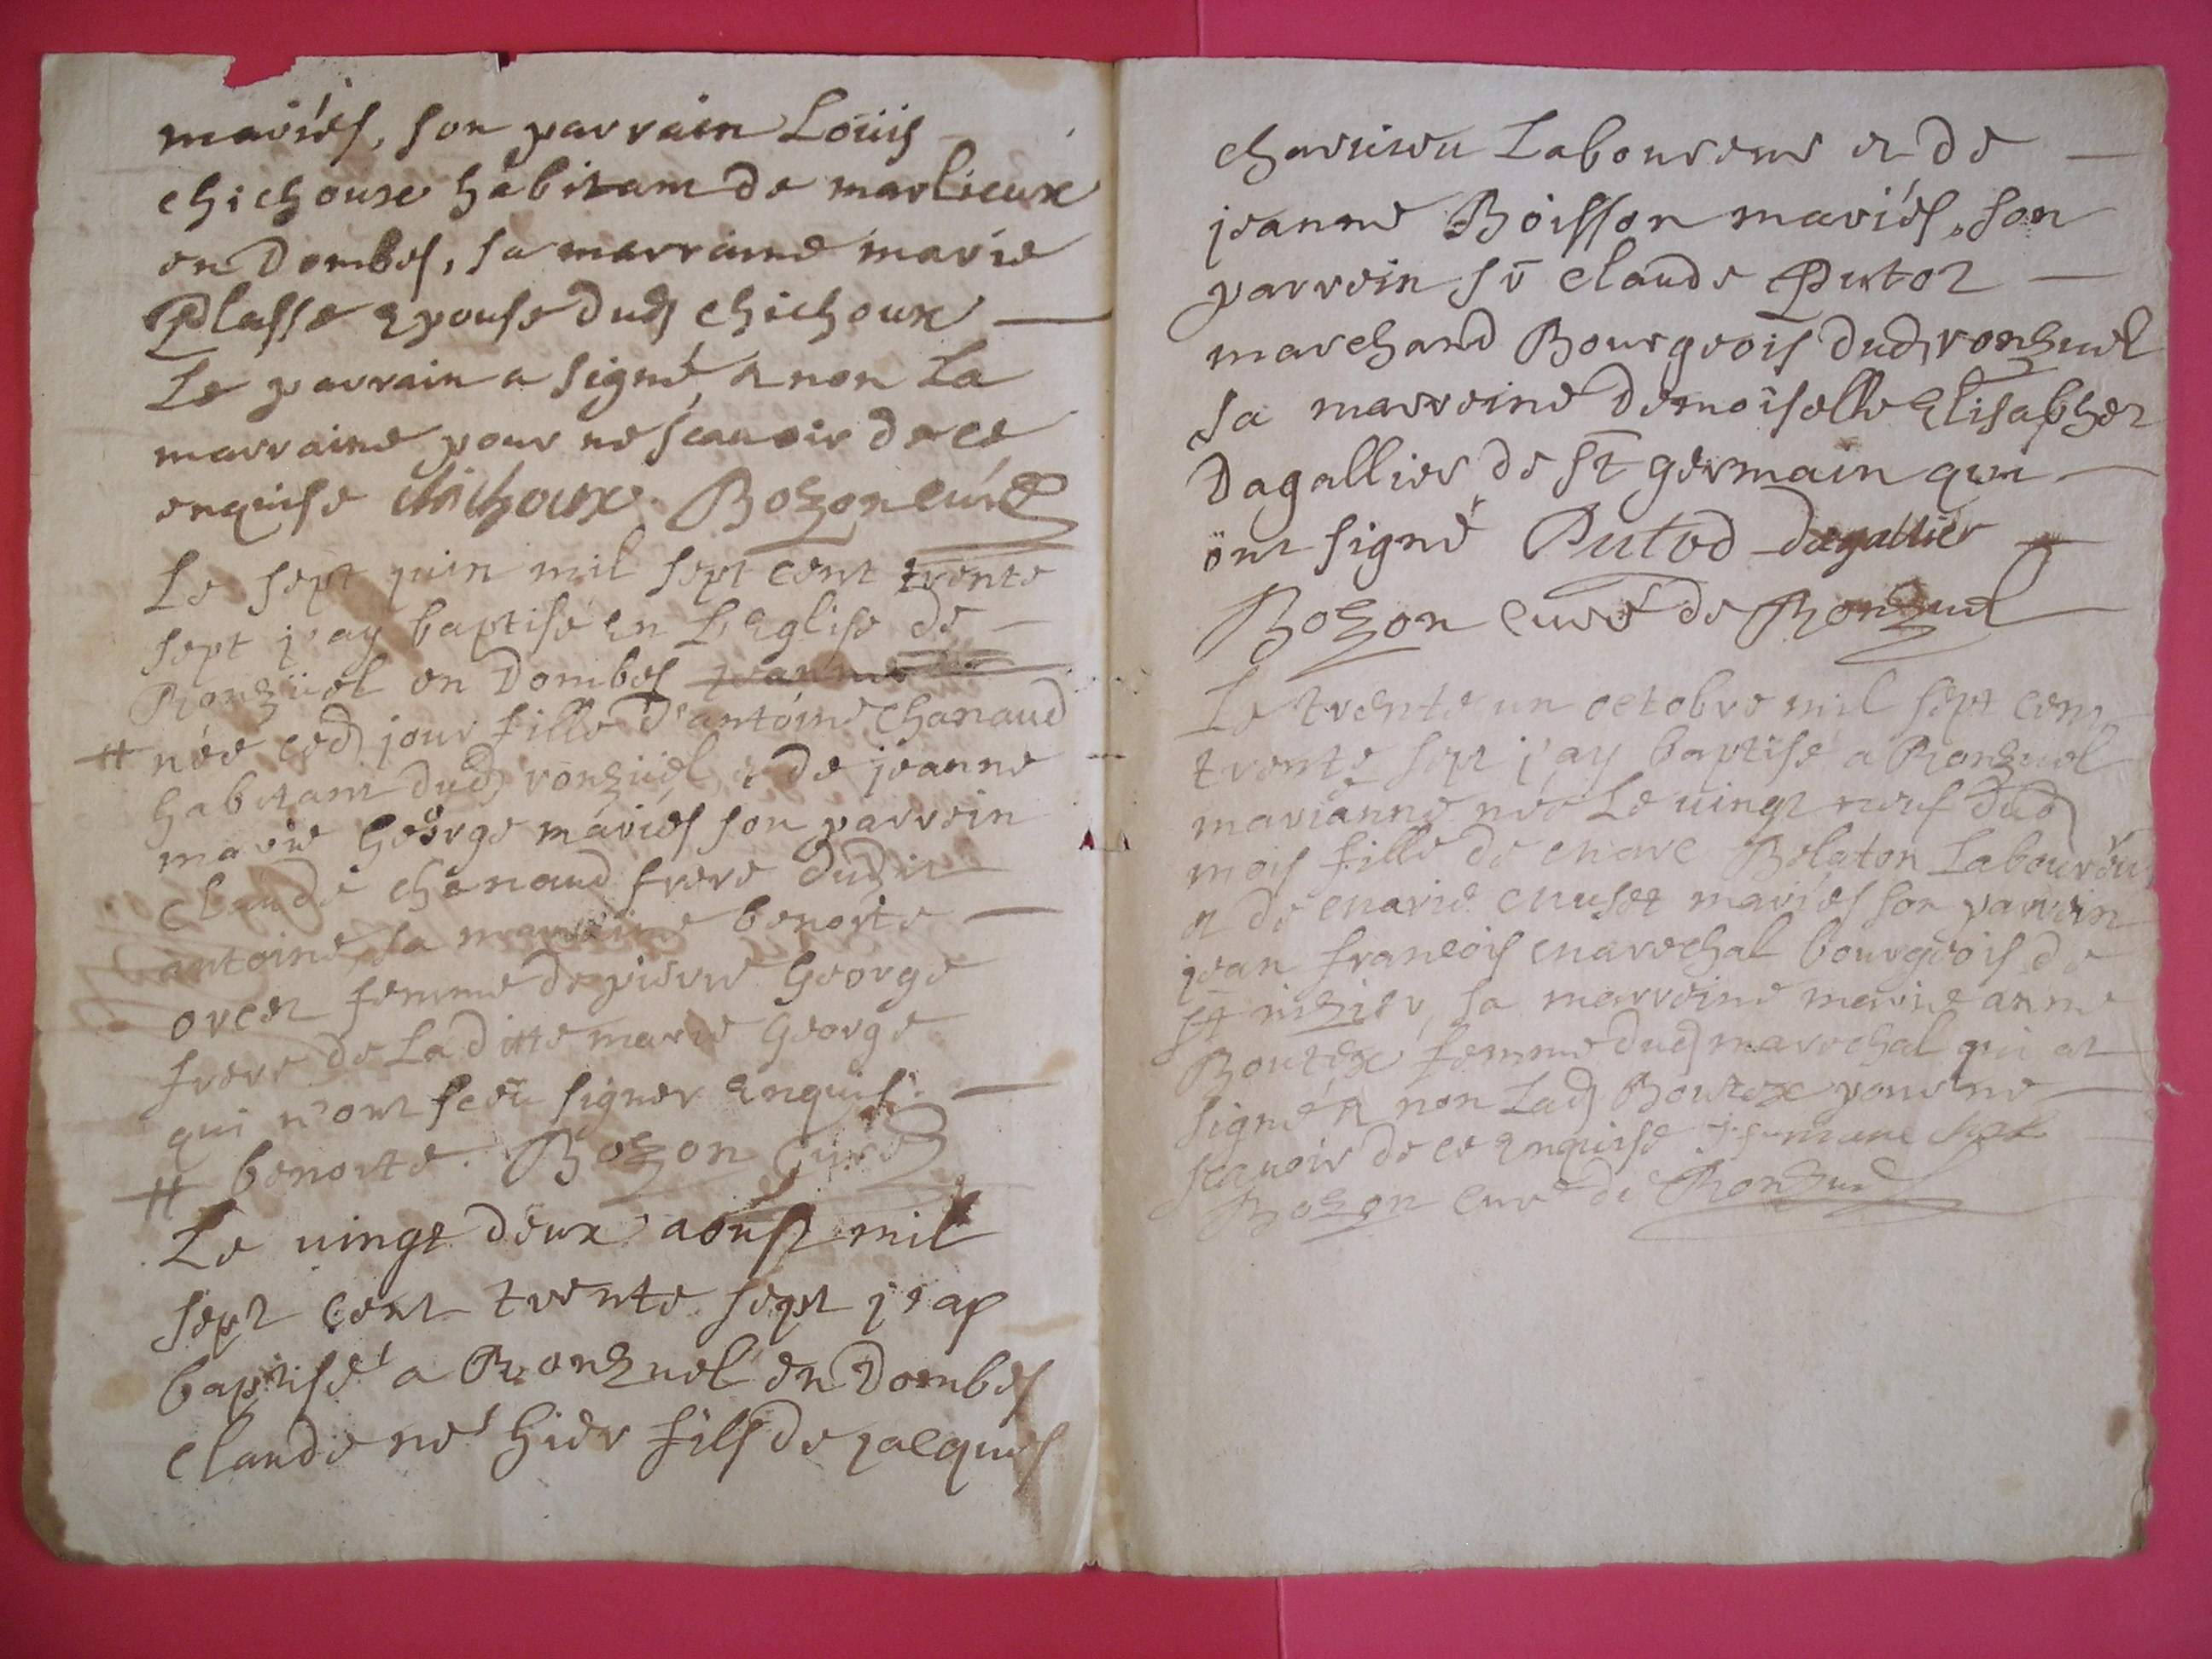 mariés, son parrain Loüis
chichoux habitant de marlieux
en Dombes, sa marraine marie
Plasse epouse dud chichoux
Le parrain a signé, et non La
marraine pour ne scauoir de ce
enquise chichoux Bozon curé
Le sept juin mil sept cent trente
sept j'ay baptisé en L'Eglise de
Ronzüel en Dombes jeanne
# née ced jour fille d'antoine Chanaud
habitant dud ronzüel et de jeanne
marie George mariés son parrein
claude chanaud frere dud
antoine, sa marraine benoite
orcet femme de pierre George
frere de La ditte marie George
qui n'ont sceu signer enquis.
# benoite. Bozon Curé
Le uingt deux aoust mil
sept cent trente sept j'ay
baptisé a Ronzuel en Dombes
claude né hier fils de jacques
Laboureur et de
jeanne Boisson mariés, son
parrein sr claude Putot
marchand Bourgeois dud ronzuel
sa marreine demoiselle Elisabhet
Dagallier de st germain qui
ont signé Putod dagallier
Bozon curé de Ronzuel
Le trente un octobre mil sept cent
trente sept j'ay baptisé a Ronzuel
marianne née Le uingt neuf dud
mois fille de marc Belaton Laboureur
et de marie musset mariés son parrein
jean francois marechal bourgeois de
st nizier, sa marreine marie anne
Boutex femme dud marechal qui at
signé et non Lad Boutex pour ne
scauoir de ce enquise
Bozon curé de Ronzuel